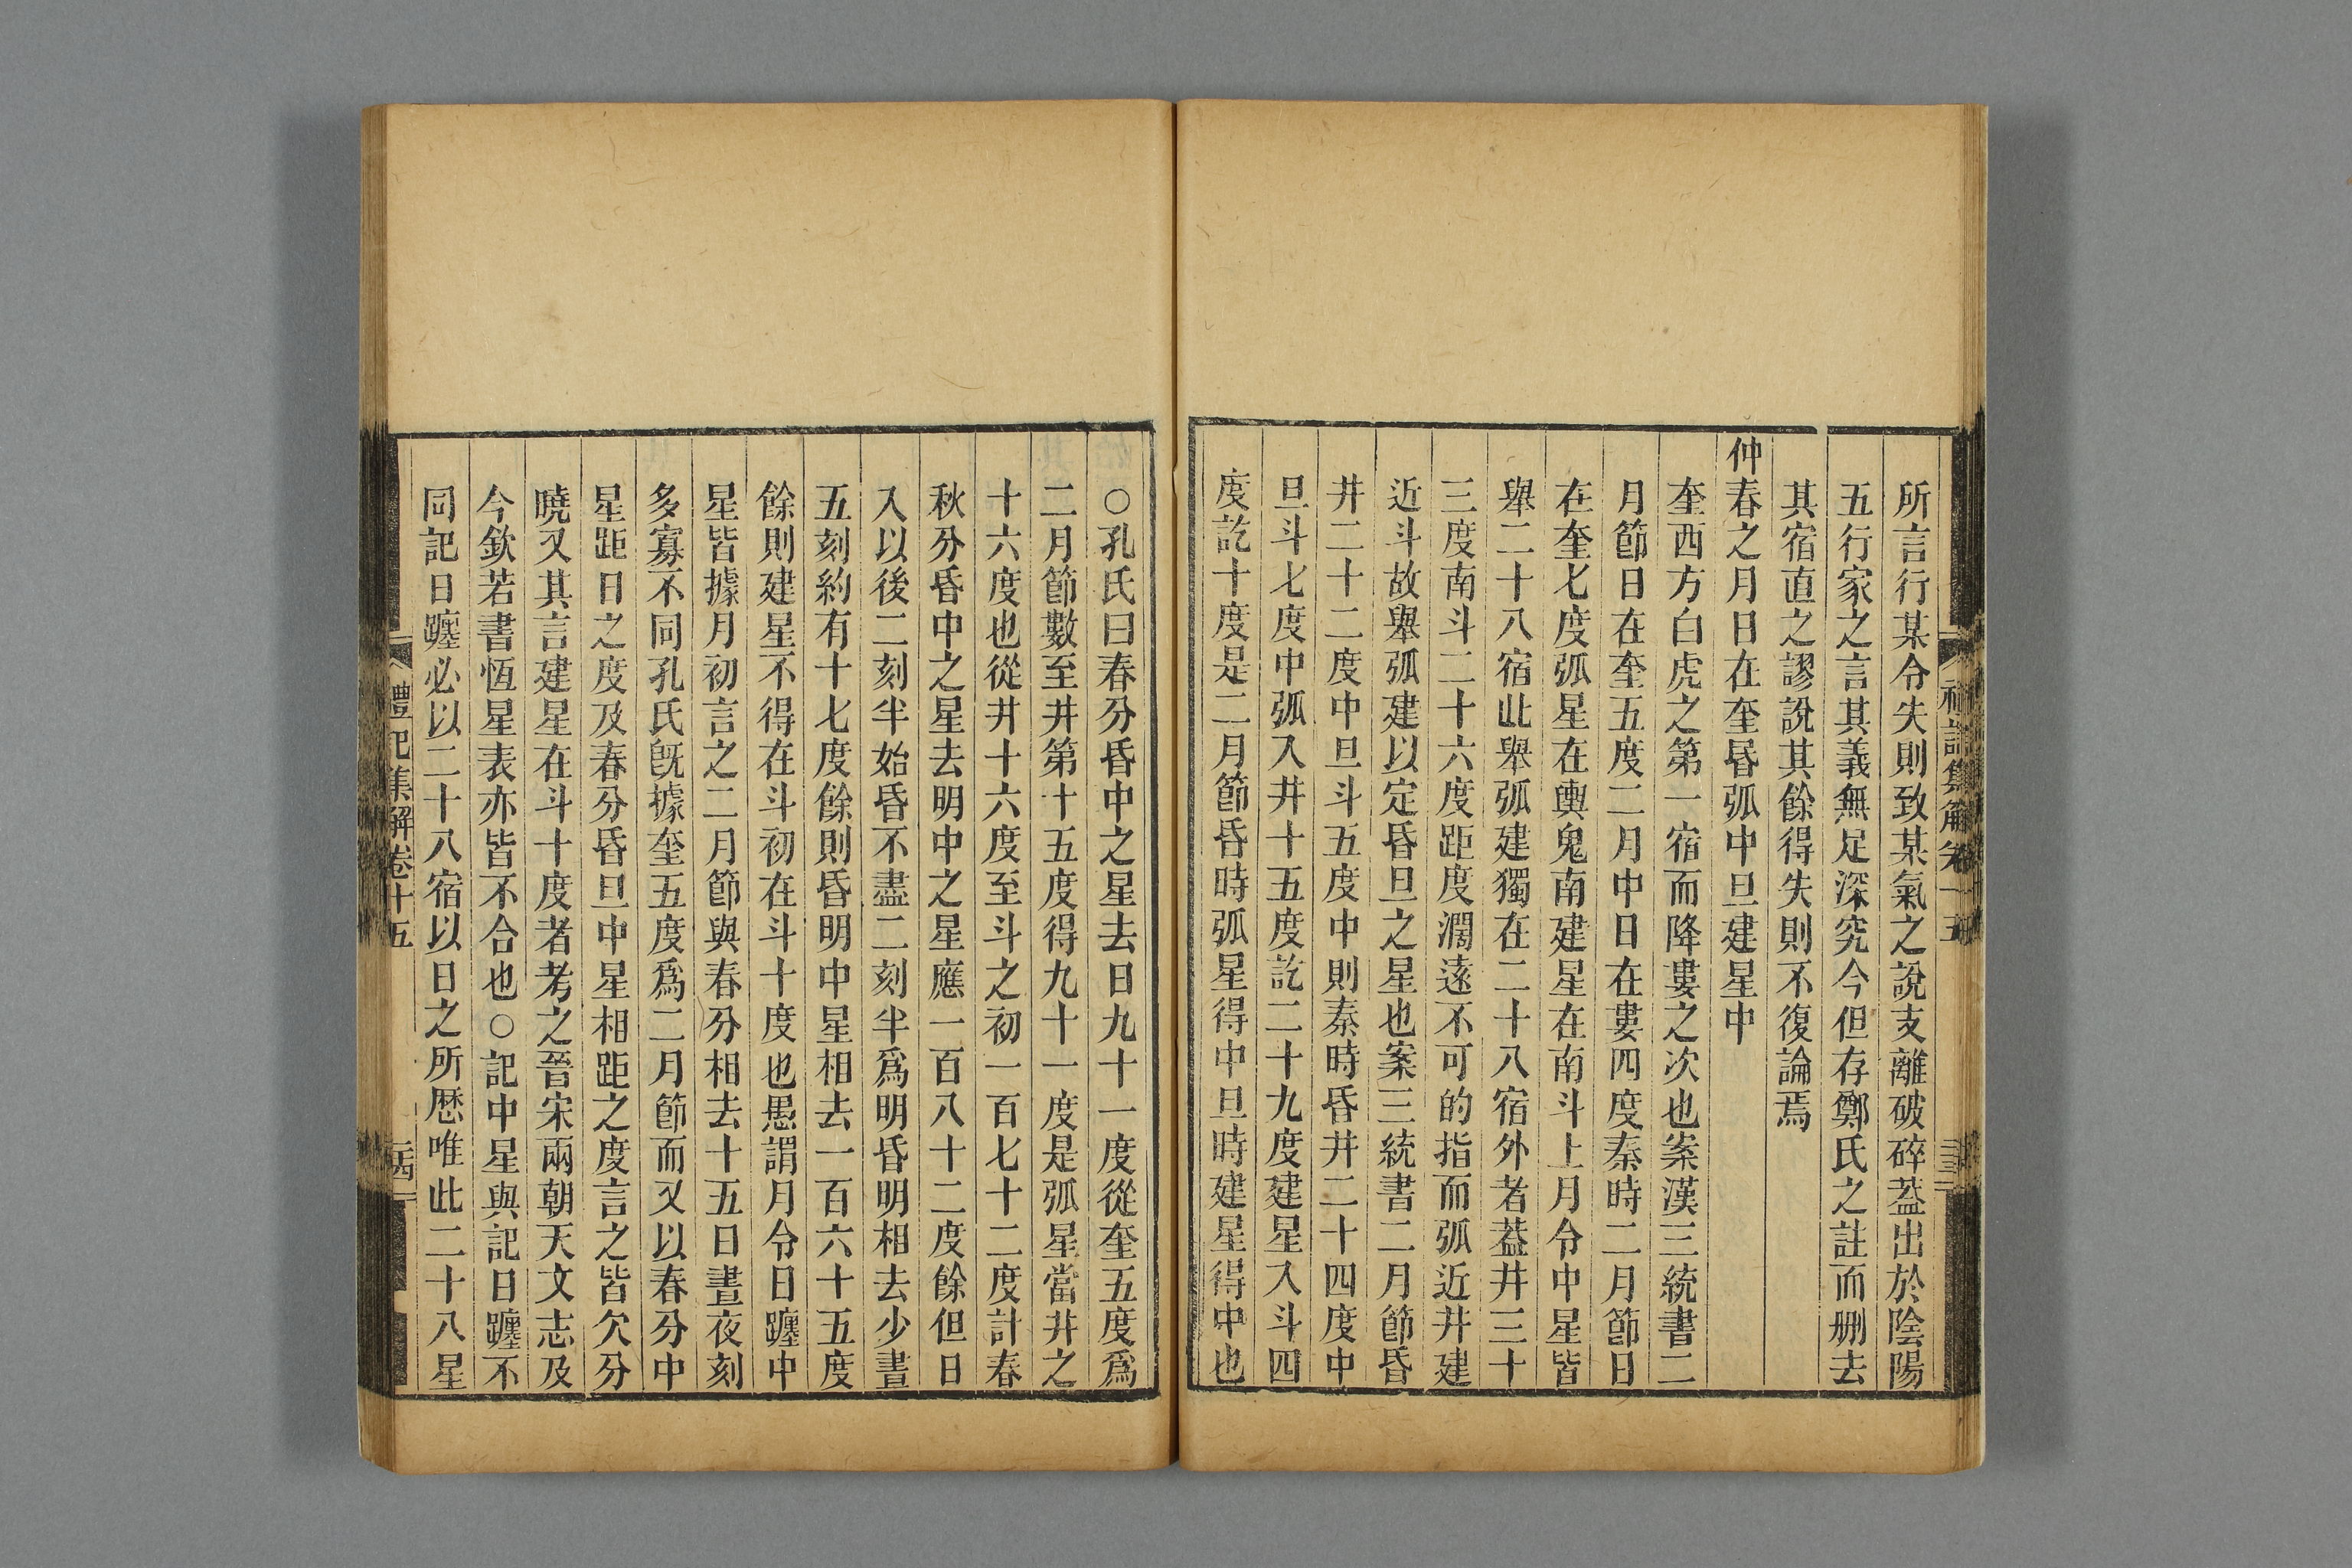 所言行某令失則致某氣之說支離破碎葢出於陰陽
五行家之言其義無足深究今但存鄭氏之註而刪去
其宿直之謬說其餘得失則不復論焉
仲春之月日在奎昏弧中旦建星中
奎西方白虎之第一宿而降婁之次也案漢三統書二
月節日在奎五度二月中日在婁四度秦時二月節日
在奎七度弧星在輿鬼南建星在南斗上月令中星皆
舉二十八宿此舉弧建獨在二十八宿外者葢井三十
三度南斗二十六度距度濶遠不可的指而弧近井建
近斗故舉弧建以定昏旦之星也案三統書二月節昏
井二十二度中旦斗五度中則秦時昏井二十四度中
旦斗七度中弧入井十五度訖二十九度建星入斗四
度訖十度是二月節昏時弧星得中旦時建星得中也
○孔氏曰春分昏中之星去日九十一度從奎五度爲
二月節數至井第十五度得九十一度是弧星當井之
十六度也從井十六度至斗之初一百七十二度計春
秋分昏中之星去明中之星應一百八十二度餘但日
入以後二刻半始昏不盡二刻半爲明昏明相去少晝
五刻約有十七度餘則昏明中星相去一百六十五度
餘則建星不得在斗初在斗十度也愚謂月令日躔中
星皆據月初言之二月節與春分相去十五日晝夜刻
多寡不同孔氏旣據奎五度爲二月節而又以春分中
星距日之度及春分昏旦中星相距之度言之皆欠分
曉又其言建星在斗十度者考之晉宋兩朝天文志及
今欽若書恆星表亦皆不合也○記中星與記日躔不
同記日躔必以二十八宿以日之所歴唯此二十八星
禮記集解卷十五